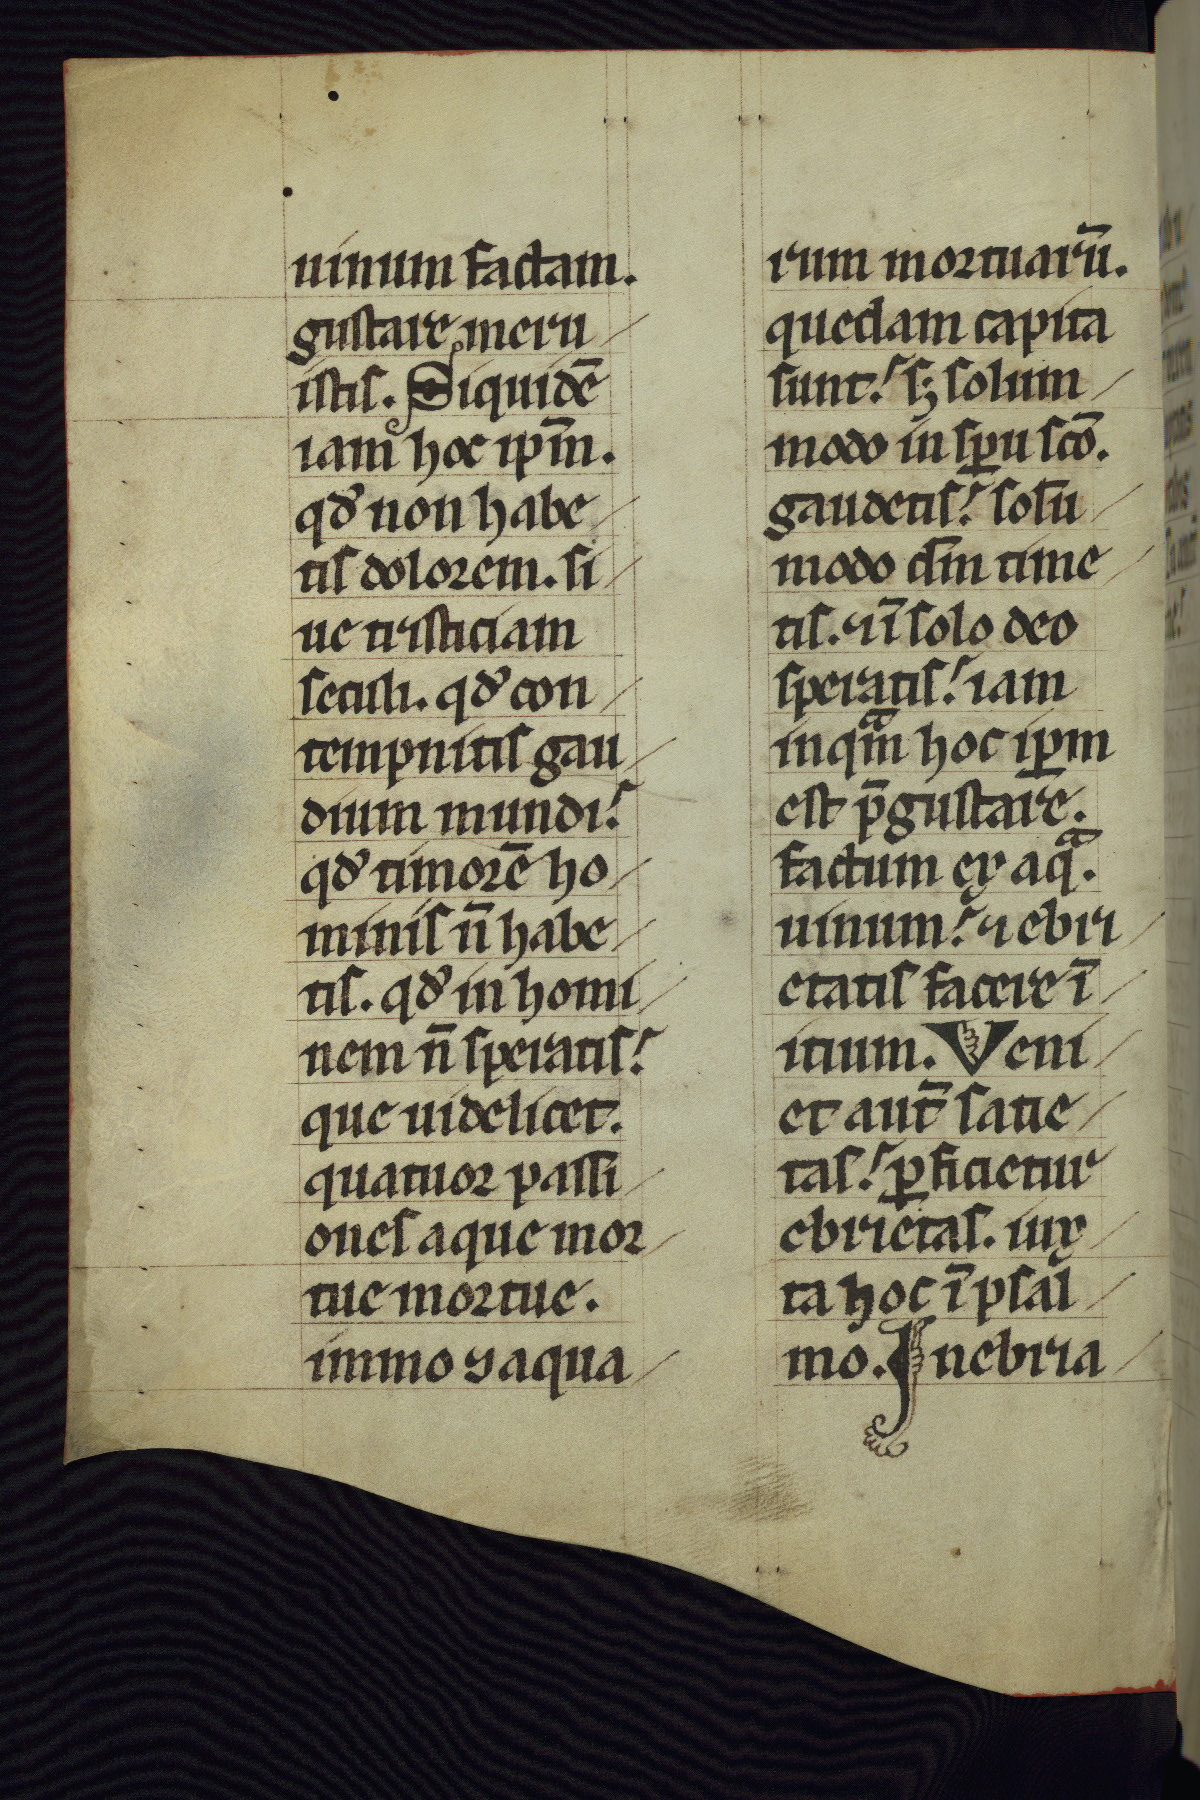 uinum factam.
gustare meru
istis. Siquidē
iam hoc ip̄m.
qď non habe
tis dolorem. si
ue tristiciam
seculi. qď con
tempnitis gau
dium mundi?
qď timorē ho
minis n̄ habe
tis. qď in homi
nem n̄ speratis?
que uidelicet.
quatuor passi
ones aque mor
tue mortue.
immo ⁊ aqua
rum mortuarū.
quedam capita
sunt? sꝫ solum
modo in sp̄u scō.
gaudetis? solū
modo dm̄ time
tis. ⁊ ī solo deo
speratis? iam
inqᵃm hoc ip̄m
est p̄gustare.
factum ex aqᵃ.
uinum? ⁊ ebri
etatis facere ī
itium. Veni
et aut̄ satie
tas? ꝑficietur
ebrietas. iux
ta hoc ī psal
mo. Inebria